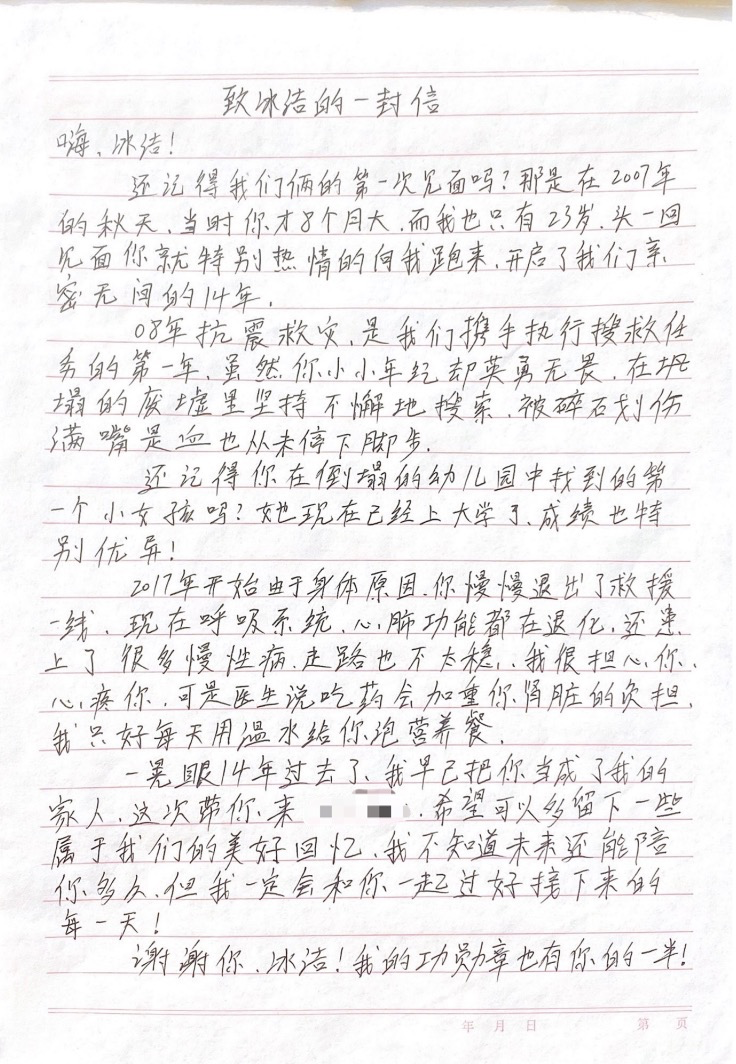 致冰洁的一封信
嗨，冰洁！
还记得我们俩的第一次见面吗？那是在2007年
的秋天，当时你才8个月大，而我也只有23岁，头一回
见面你就特别热情的向我跑来，开启了我们亲
密无间的14年，
08年抗震救灾，是我们携手执行搜救任
务的第一年，虽然你小小年纪却英勇无畏，在坍
塌的废墟里坚持不懈地搜索，被碎石划伤
满嘴是血也从未停下脚步.
还记得你在倒塌的幼儿园中找到的第
一个小女孩吗？她现在已经上大学了，成绩也特
别优异！
2017年开始由于身体原因，你慢慢退出了救援
一线，现在呼吸系统，心肺功能都在退化，还患
上了很多慢性病，走路也不太稳，我很担心你，
心疼你，可是医生说吃药会加重你肾脏的负担，
我只好每天用温水给你泡营养餐，
一晃眼14年过去了，我早已把你当成了我的
家人，这次带你来，希望可以多留下一些
属于我们的美好回忆，我不知道未来还能陪
你多久，但我一定会和你一起过好接下来的
每一天！
谢谢你，冰洁！我的功勋章也有你的一半！
年 月 日 第 页